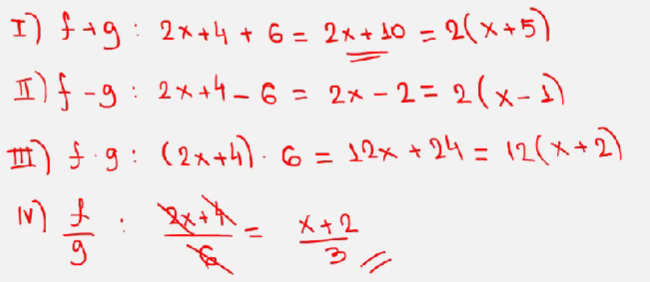 I) f+g : 2x+4 + 6 = 2x+10 = 2(x+5)
II) f-g : 2x+4-6 = 2x-2 = 2(x-1)
III) f·g : (2x+4)·6 = 12x+24 = 12(x+2)
IV) f/g : (2x+4)/6 = (x+2)/3